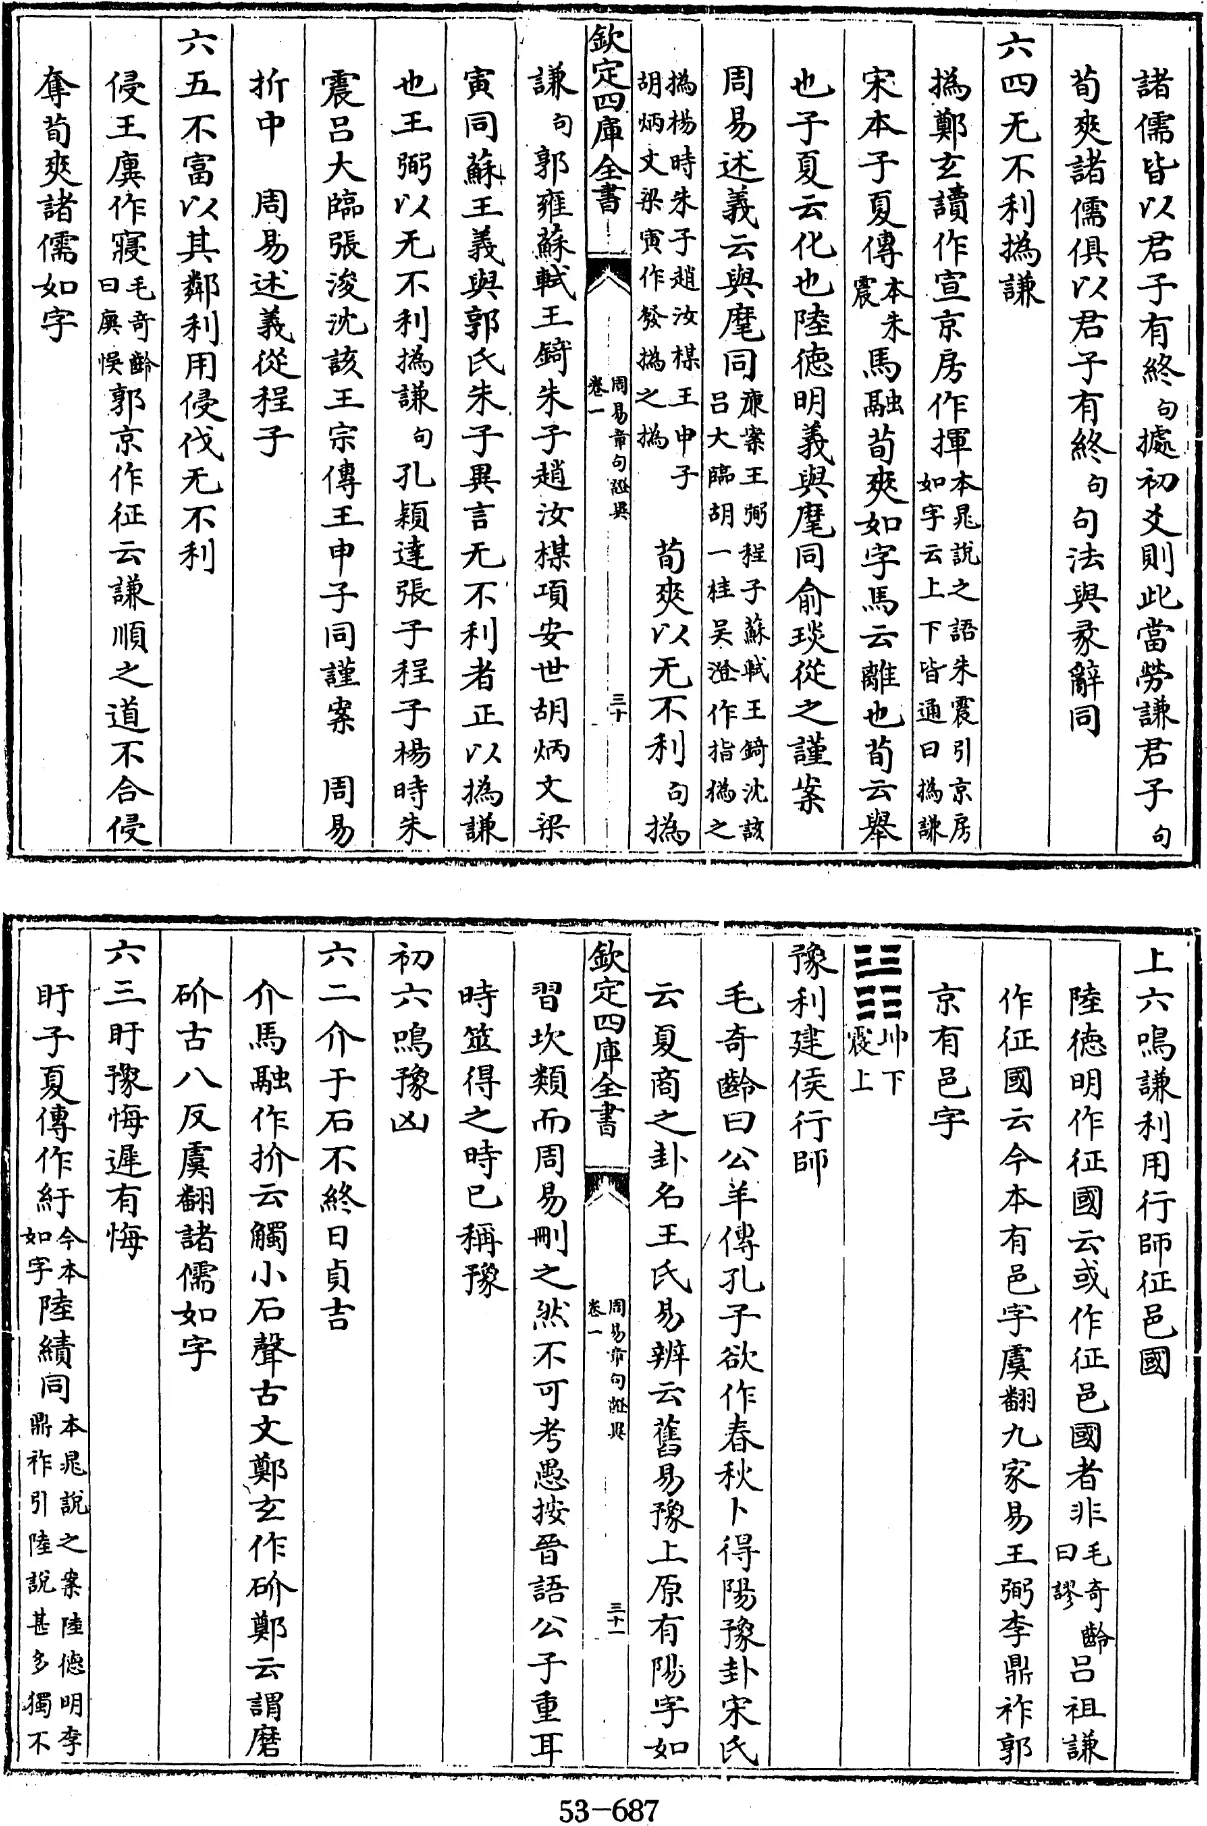 諸儒皆以君子有終句據初爻則此當勞謙君子句
荀爽諸儒俱以君子有終句句法與彖辭同
六四无不利撝謙
撝鄭玄讀作宣京房作揮本晁說之語朱震引京房如字云上下皆通曰撝謙
宋本子夏傳本朱震馬融荀爽如字馬云離也荀云舉
也子夏云化也陸德明義與麾同俞琰從之謹案
周易述義云與麾同廉案王弼程子蘇軾王錡沈該呂大臨胡一桂吴澄作指撝之
撝楊時朱子趙汝楳王申子胡炳文梁寅作發撝之撝荀爽以无不利句撝
欽定四庫全書
周易章句證異
卷一
三十
謙句郭雍蘇軾王錡朱子趙汝楳項安世胡炳文梁
寅同蘇王義與郭氏朱子異言无不利者正以撝謙
也王弼以无不利撝謙句孔穎達張子程子楊時朱
震呂大臨張浚沈該王宗傳王申子同謹案 周易
折中 周易述義從程子
六五不富以其鄰利用侵伐无不利
侵王廙作寢毛奇齡曰廙悞郭京作征云謙順之道不合侵
奪荀爽諸儒如字
上六鳴謙利用行師征邑國
陸德明作征國云或作征邑國者非毛奇齡曰謬呂祖謙
作征國云今本有邑字虞翻九家易王弼李鼎祚郭
京有邑字
坤下震上
豫利建侯行師
毛奇齡曰公羊傳孔子欲作春秋卜得陽豫卦宋氏
云夏商之卦名王氏易辨云舊易豫上原有陽字如
欽定四庫全書
周易章句證異
卷一
三十一
習坎類而周易刪之然不可考愚按晉語公子重耳
時筮得之時已稱豫
初六鳴豫凶
六二介于石不終日貞吉
介馬融作扴云觸小石聲古文鄭玄作砎鄭云謂磨
砎古八反虞翻諸儒如字
六三盱豫悔遲有悔
盱子夏傳作紆今本如字陸績同本晁說之案陸德明李鼎祚引陸說甚多獨不
53-687